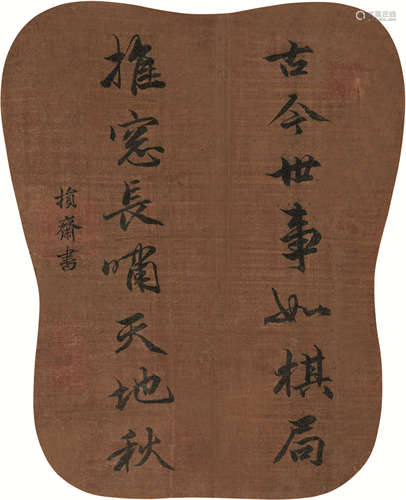 古今世事如棋局
推窓長嘯天地秋
損齋書